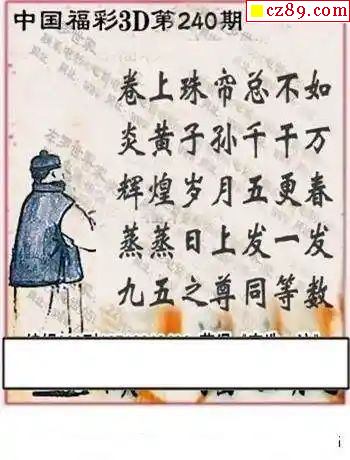 cz89.com
中国福彩3D第240期
卷上珠帘总不如
炎黄子孙千千万
辉煌岁月五更春
蒸蒸日上发一发
九五之尊同等数
i